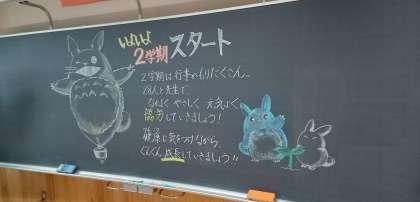 いよいよ
2学期スタート
2学期は行事がもりだくさん。
28人と先生で
なかよく やさしく 元気よく
協力していきましょう!
健康に気をつけながら
ぐんぐん成長していきましょう!!